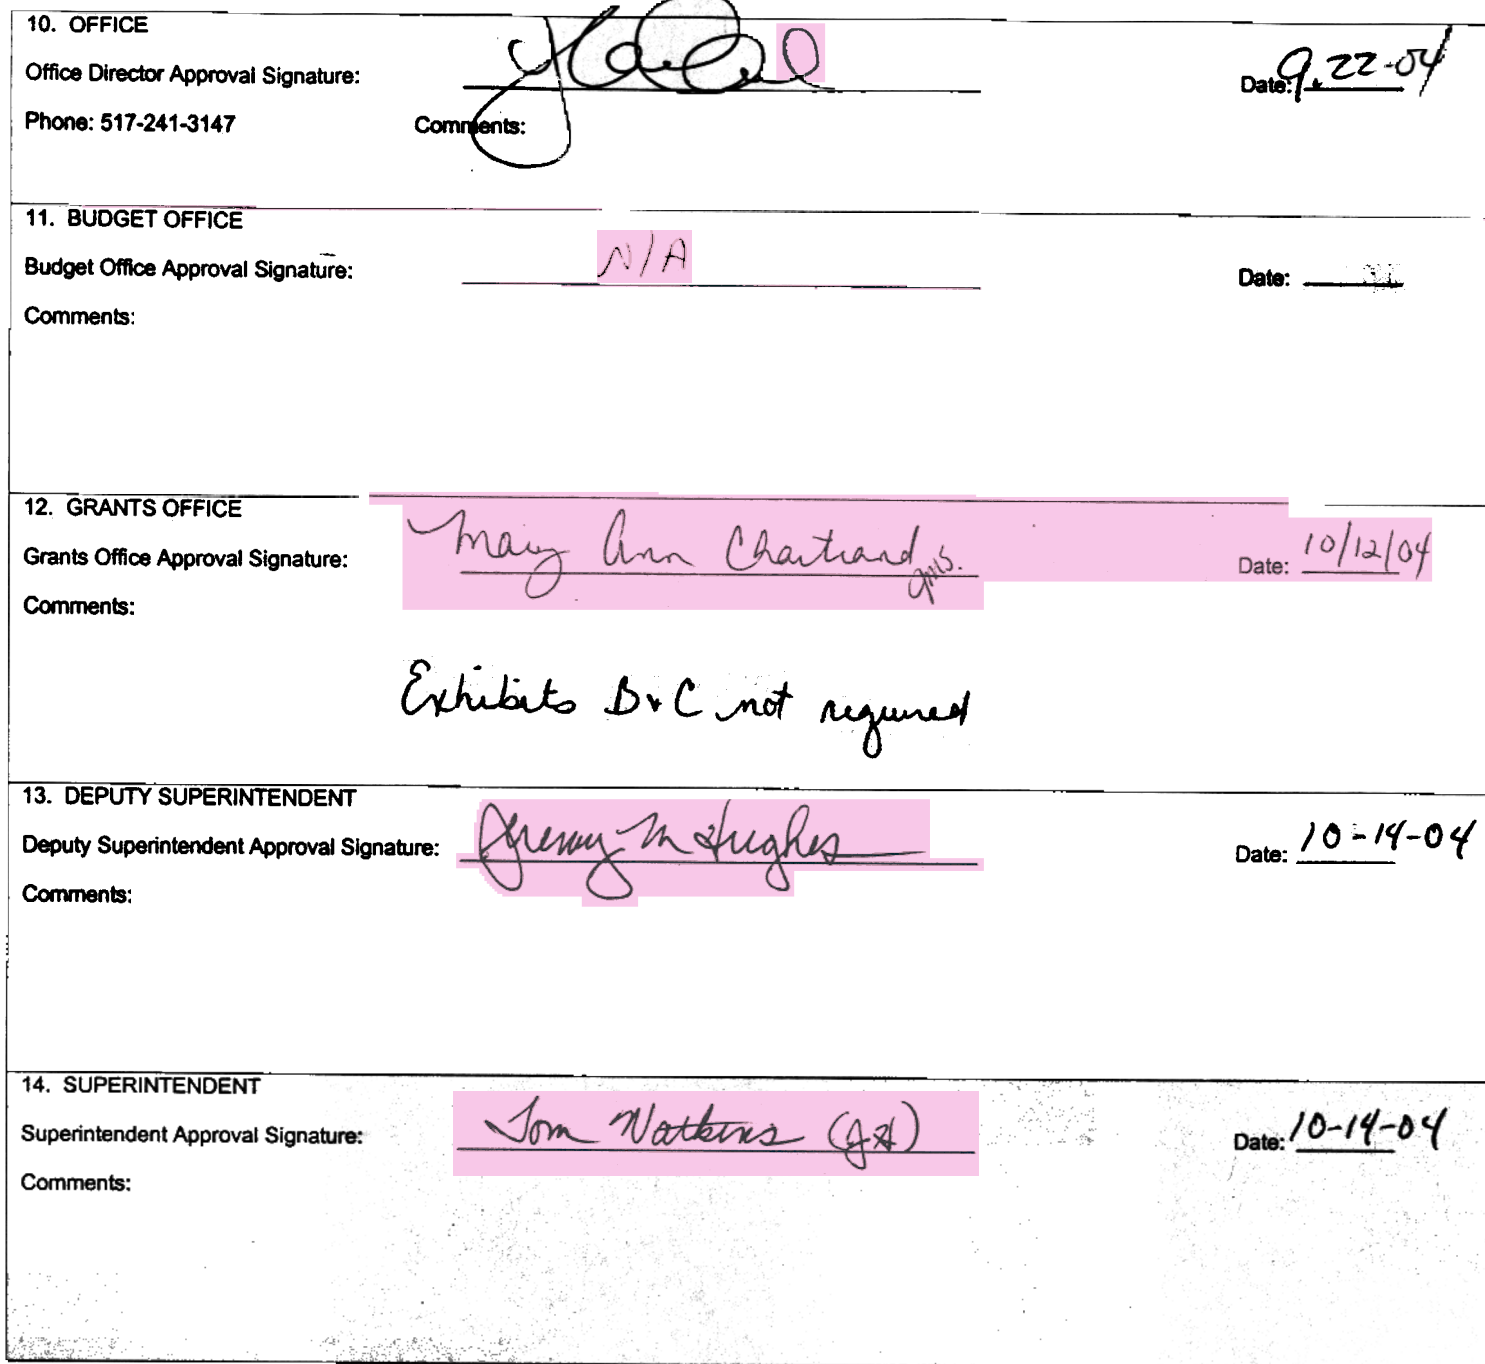 10. OFFICE
Office Director Approval Signature: Date: 9.22-04
Phone: 517-241-3147 Comments:
11. BUDGET OFFICE
Budget Office Approval Signature: N/A Date:
Comments:
12. GRANTS OFFICE
Grants Office Approval Signature: Mary Ann Chartrand gms. Date: 10/12/04
Comments:
Exhibits B & C not required
13. DEPUTY SUPERINTENDENT
Deputy Superintendent Approval Signature: Jeremy M Hughes Date: 10-14-04
Comments:
14. SUPERINTENDENT
Superintendent Approval Signature: Tom Watkins (JH) Date: 10-14-04
Comments: